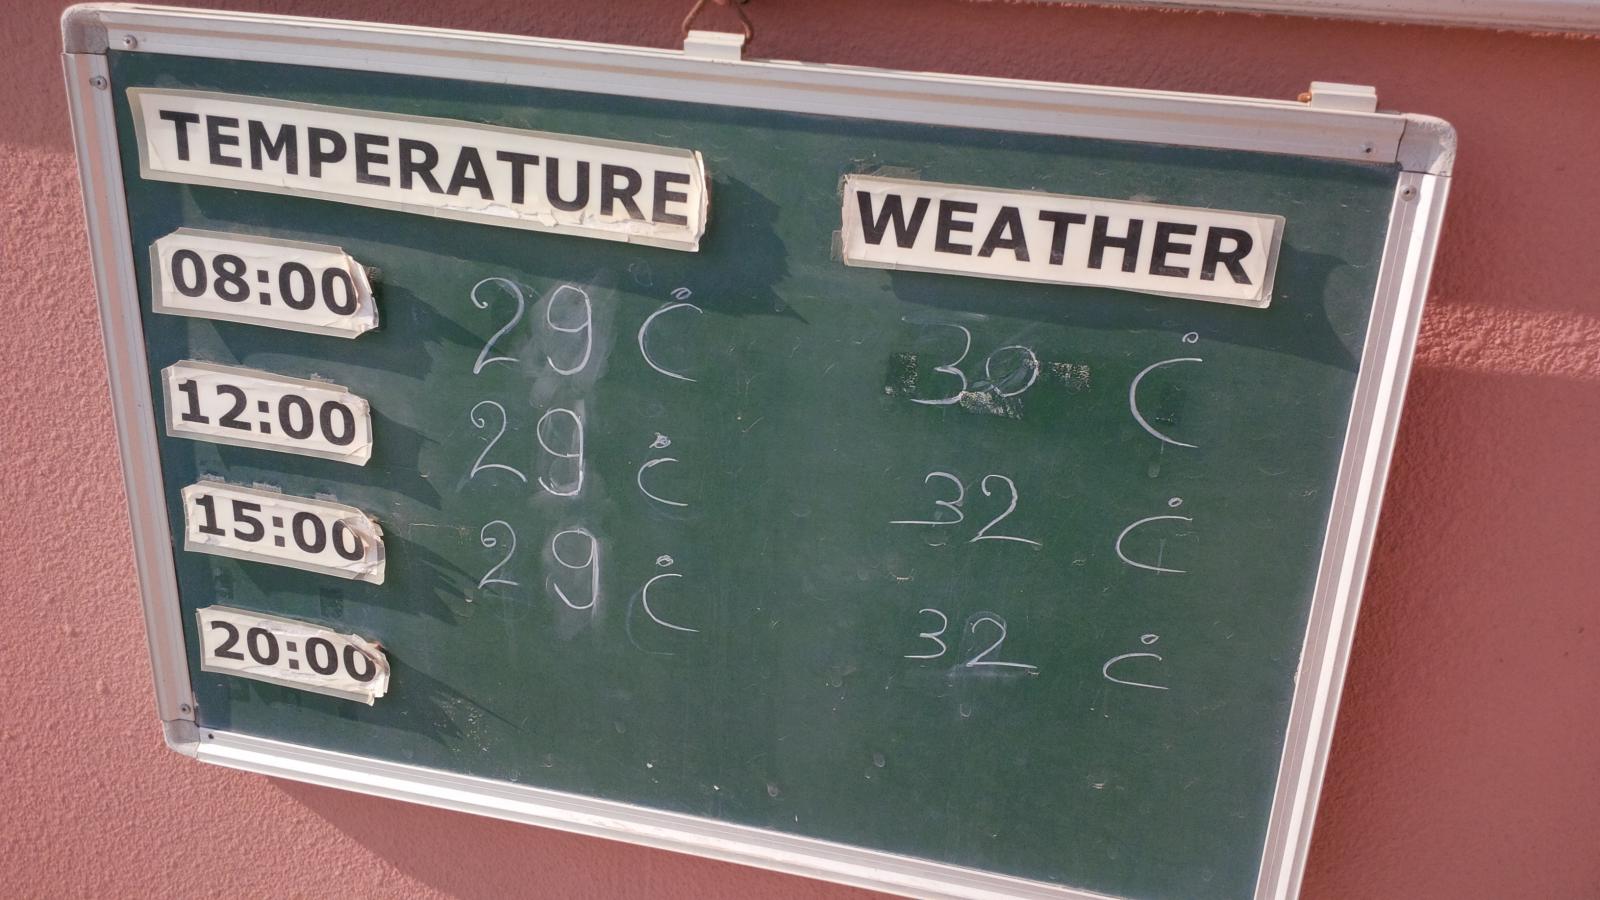 TEMPERATURE WEATHER
08:00 29 °C 30 °C
12:00 29 °C 32 °C
15:00 29 °C 32 °C
20:00